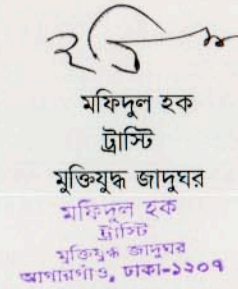 মফিদুল হক
ট্রাস্টি
মুক্তিযুদ্ধ জাদুঘর
মফিদুল হক
ট্রাস্টি
মুক্তিযুদ্ধ জাদুঘর
আগারগাঁও, ঢাকা-১২০৭